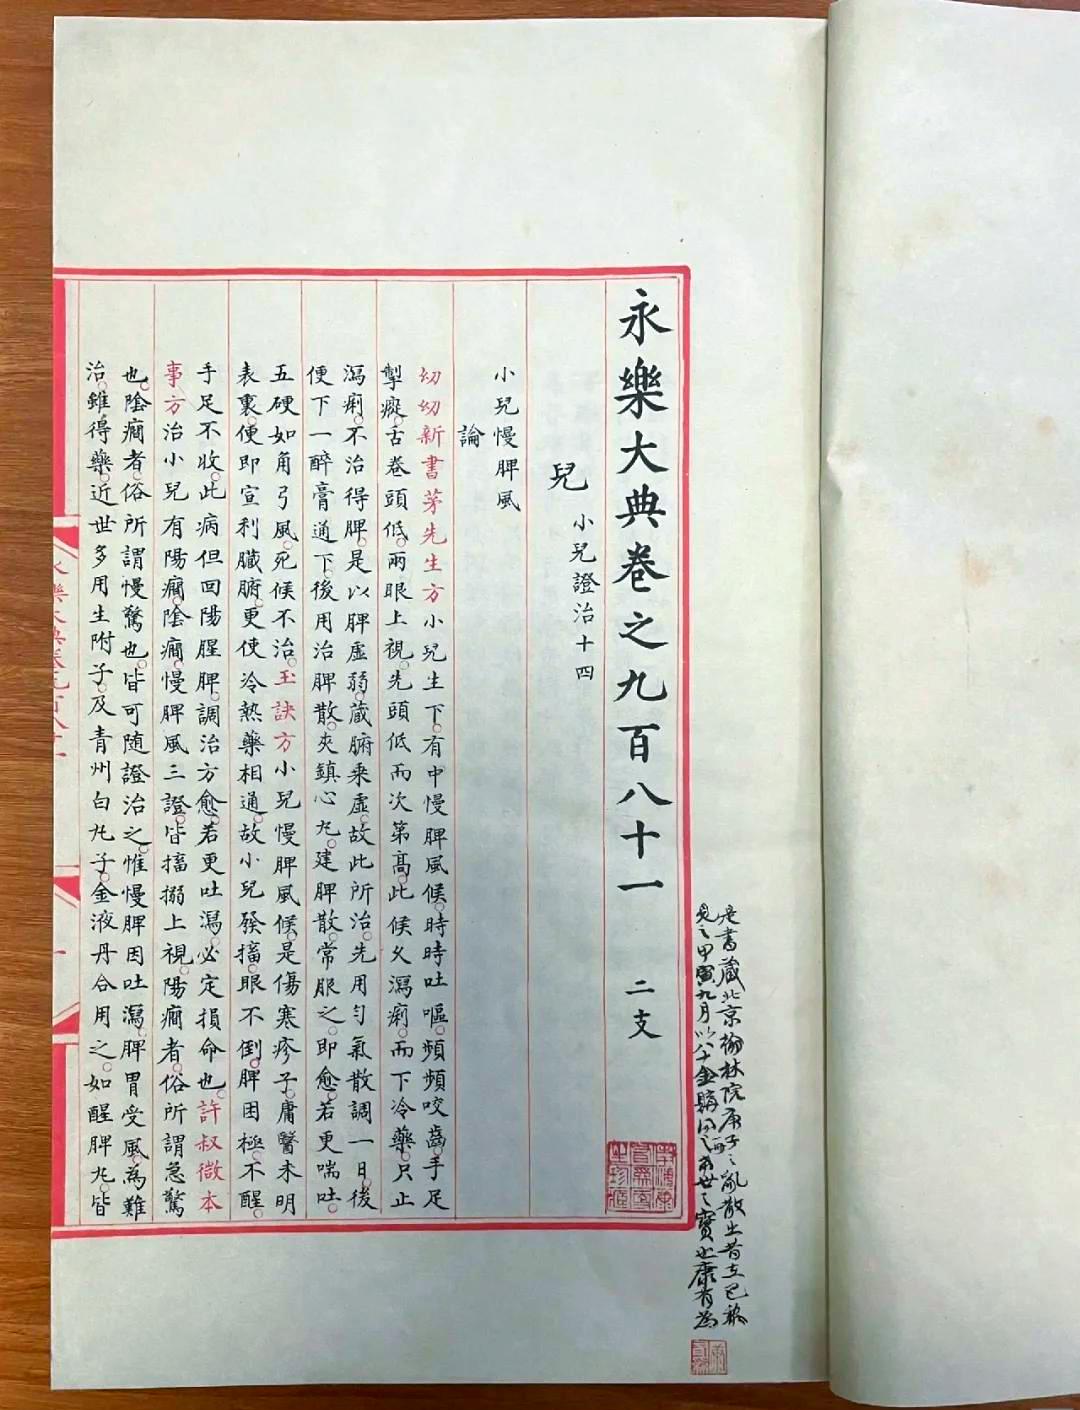 永樂大典卷之九百八十一 二支
兒 小兒證治十四
小兒慢脾風
論
幼幼新書茅先生方小兒生下。有中慢脾風候。時時吐嘔。頻頻咬齒。手足
掣瘲。舌卷頭低。兩眼上視。先頭低而次第高。此候乂瀉痢。而下冷藥。只止
瀉痢。不治得脾。是以脾虛弱。蔵腑乘虛。故此所治。先用勻氣散調一日。後
便下一醉膏通下。後用治脾散。夾鎮心九。建脾散。常服之。即愈。若更喘吐。
五硬如角弓風。死候不治。玉訣方小兒慢脾風候。是傷寒疹子。庸醫未明
表裏。便即宣利臟腑。更使冷熱藥相通。故小兒發搐。眼不倒。脾困極。不醒。
手足不收。此病但回陽醒脾。調治方愈。若更吐瀉。必定損命也。許叔微本
事方治小兒有陽癇。陰癇。慢脾風三證。皆搐搦上視。陽癇者。俗所謂急驚
也。陰癇者。俗所謂慢驚也。皆可隨證治之。惟慢脾因吐瀉。脾胃受風。為難
治。雖得藥。近世多用生附子。及青州白九子。金液丹合用之。如醒脾九。皆
是書藏北京翰林院庚子之亂散出昔在巴黎
見之甲寅九月以八十金購得之希世之寶也康有為